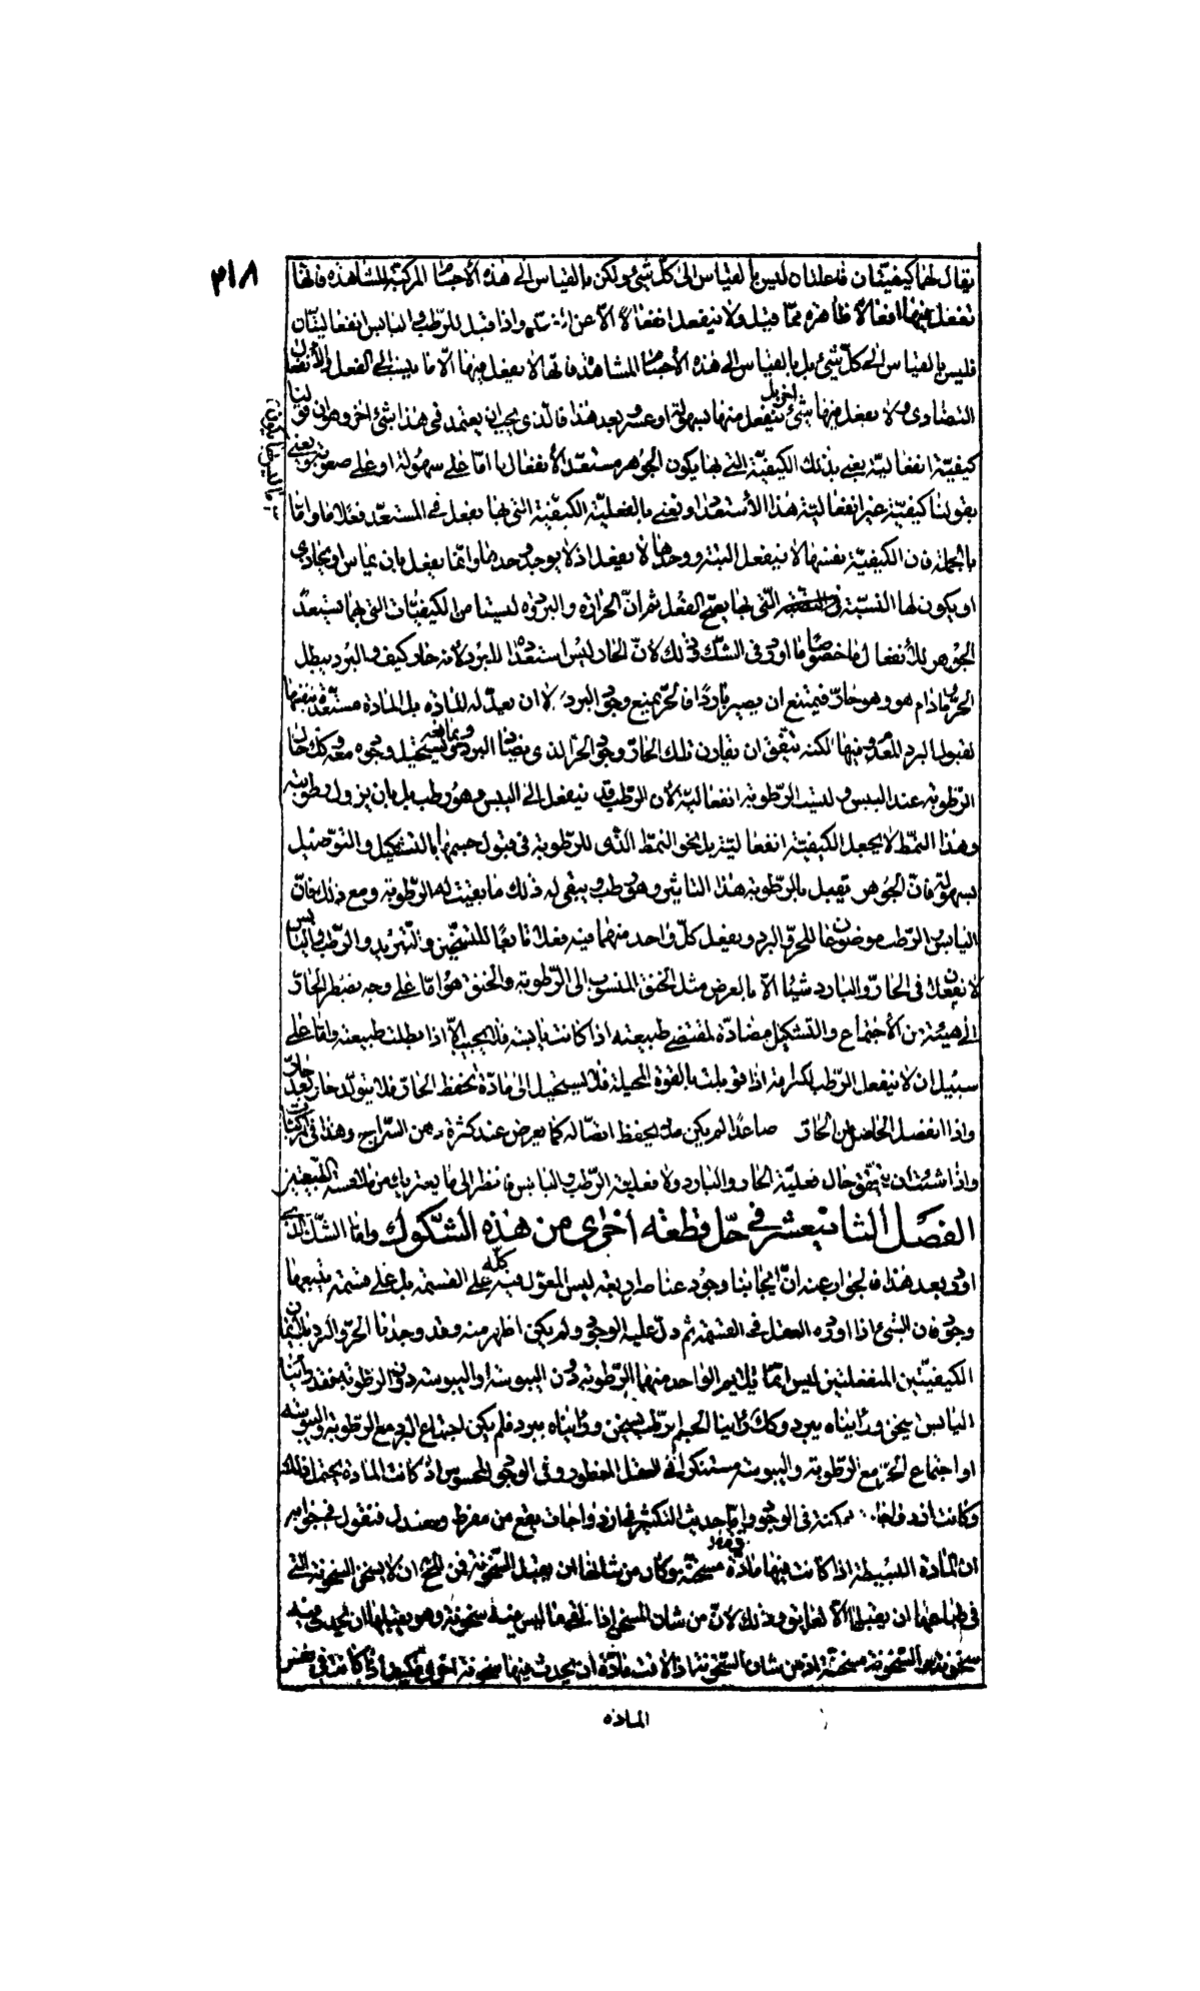 ٢١٨
يقال لهما كيفيتان فاعلتان ليس بالقياس الى كل شئ ولكن بالقياس الى هذه الأجسام المركبة المشاهدة فانها
تفعل فيها افعالا ظاهرة مما قيل ولا ينفعل انفعالا الا عن واذا قيل للرطب واليابس انفعاليتان
فليس بالقياس الى كل شئ بل بالقياس الى هذه الأجسام المشاهدة فانها لا يفعل فيها الا ما ينسب الى الفعل والأنفعال
التضادى ولا يفعل فيها شئ اخر بل ينفعل منها بسهولة او عسر وبعد هذا فالذى يجب ان يعتمد فى هذا شئ اخر وهو ان قولنا
كيفية انفعالية يعنى بذلك الكيفية التى بها يكون الجوهر مستعد الأنفعال اما على سهولة او على صعوبة ويعنى
بقولنا كيفية غير انفعالية هذا الأستعداد ونعنى بالفعلية الكيفية التى بها يفعل فى المستعد فعلا ما واما
بالجملة فان الكيفية نفسها لا ينفعل البتة ووحدها لا يفعل اذ لا يوجد وحدها وانما يفعل بان يماس او يحاذى
او يكون لها النسبة التى بها يصح الفعل ثم ان الحرارة والبرودة ليستا من الكيفيات التى بها يستعد
الجوهر للأنفعال ما خصوصا ما اورد فى الشك فى ذلك لان الحار ليس استعداده للبرد لأنه حار كيف والبرد يبطل
الحر وما دام هو وهو حار فيمتنع ان يصير باردا فالحر يمنع وجود البرد لا ان يعد له المادة بل المادة مستعدة بنفسها
لقبول البرد المعدوم فيها لكنه يتفق ان يقارن تلك الحال وجود الحر الذى يضاد البرد ويمانعه ويستحيل وجوده معه وكذلك حال
الرطوبة عند اليبس وليست الرطوبة انفعالية لأن الرطب قد ينفعل الى اليبس وهو رطب بل بان يزول رطوبته
وهذا النمط لا يجعل الكيفية انفعالية بل نحو النمط الذى للرطوبة فى قبول جسمها بالتشكيل والتوصيل
بسهولة فان الجوهر يقبل بالرطوبة هذا التاثير وهو رطب ويبقى له ذلك ما بقيت له الرطوبة ومع ذلك فان
اليابس والرطب موضوعان للحر والبرد ويفعل كل واحد منهما فيه فعلا تابعا للتسخين والتبريد والرطب واليابس
لا يفعلان فى الحار والبارد شيئا الا بالعرض مثل الخنق المنسوب الى الرطوبة والخنق هو اما على وجه يضطر الحار
الى هيئة من الأجتماع والتشكيل مضادة لمقتضى طبيعته اذا كانت يابسة فلا يجيب الا اذا بطلت طبيعته واما على
سبيل ان لا ينفعل الرطب لكثرته اذا قوبلت بالقوة المحيلة فلا يستحيل الى مادة تحفظ الحار فلا يتولد حار بعد حار
واذا انفصل الحاصل من الحار صاعدا لم يكن مادة يحفظ اتصاله كما يعرض عند كثرة دهن السراج وهذا فى المركبات
واذا شئت ان يتحقق حال فعلية الحار والبارد ولا فعلية الرطب واليابس فانظر الى ما يعتريك من ملامسة الطبيعتين
الفصل الثانيعشر فى حل قطعة اخرى من هذه الشكوك واما الشك الذى
اورد بعد هذا فالجواب عنه ان ايجابنا وجود عناصر اربعة ليس المعول فيه كله على القسمة بل على قسمة يتبعها
وجود فان الشئ اذا اورده العقل فى القسمة ثم دل عليه الوجود ولم يكن اظهر منه وقد وجدنا الحر والبرد يلائمان
الكيفيتين المنفعلتين ليس انما يلائم الواحد منهما الرطوبة دون اليبوسة او اليبوسة دون الرطوبة فقد راينا
اليابس يسخن ورايناه يبرد وكذلك راينا الجسم يرطب يسخن ورايناه يبرد فلم يكن اجتماع البرد مع الرطوبة واليبوسة
او اجتماع الحر مع الرطوبة واليبوسة مستنكرا فى العقل المفطور وفى الوجود المحسوس اذ كانت المادة يحتمل ذلك
وكانت ازدواجا ممكنة فى الوجود واما حديث التكثر فى ازدواجات يقع من مفرط ومعتدل فنقول فى جوابه
ان المادة البسيطة اذا كانت فيها مادة قوة مسخنة وكان من شانها ان يقبل السخونة فمن المح ان لا يسخن السخونة التى
فى طباعها ان يقبلها الا لعايق وذلك لان من شان المسخن اذا لقى ما ليس فيه سخونة وهو يقبلها ان يحدث فيه
سخونة والسخونة مسخنة اذ من شان السخونة اذا لاقت مادة ان يحدث فيها سخونة اخرى فكيف اذا كانت فى نفس
المادة